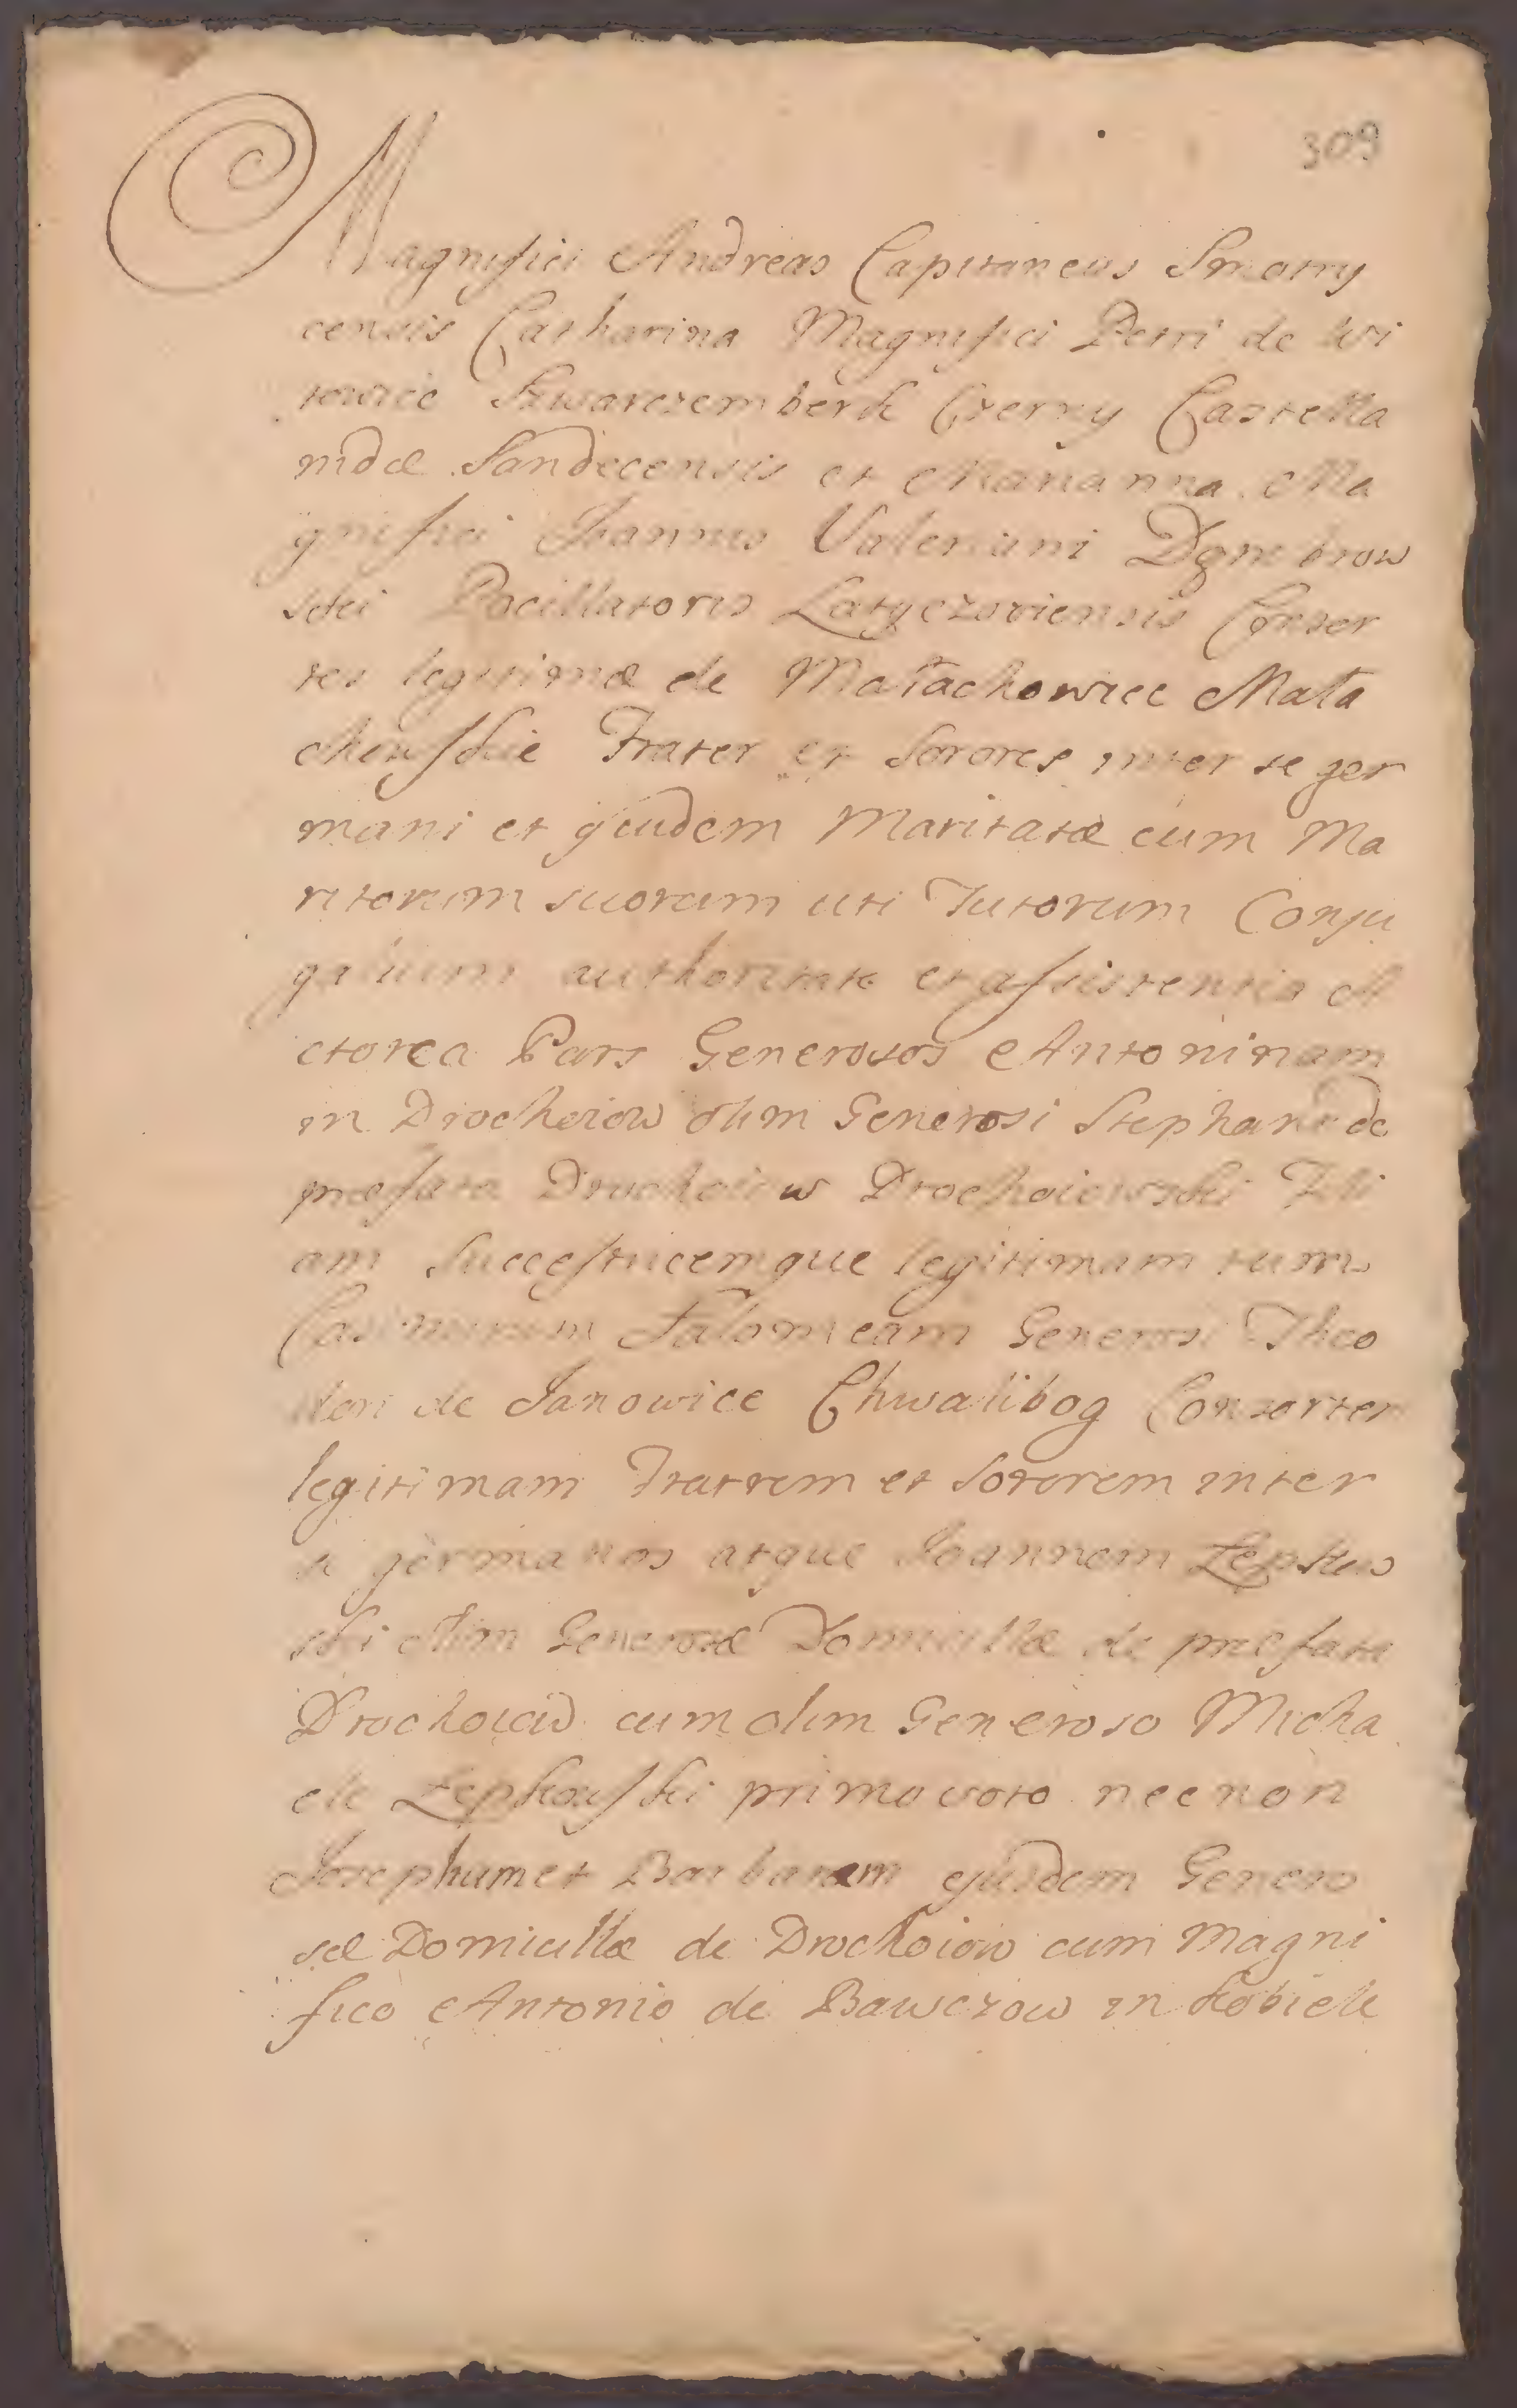 309
Magnifici Andreas Capitaneus Smotry
censis Catharina Magnifici Petri de Wi
towice Szwarczemberk Czerny Castella
nidæ Sandecensis et Marianna Ma
gnifici Joannis Valeriani Dąmbrow
ski Pocillatoris Latyczoviensis Consor
tes legitimæ de Małachowice Mała
chowskie Frater et Sorores inter se ger
mani et quidem Maritatæ cum Ma
ritorum suorum uti Tutorum Conju
galium authoritate et assistentia A
ctorea Pars Generosos Antoninam
in Drochoiow olim Generosi Stephani de
præfata Drochoiow Drochoiowski Fili
am Successricemque legitimam tum
Casimirum Salomeam Generosi Theo
dori de Janowice Chwalibog Consortem
legitimam Fratrem et Sororem inter
se germanos atque Joannem Łepkow
ski olim Generosæ Domicillæ de præfata
Drochoiow cum olim Generoso Micha
ele Łepkowski primo voto necnon
Josephum et Barbaram ejusdem Genero
sæ Domicillæ de Drochoiow cum Magni
fico Antonio de Bawczow in Kobiele